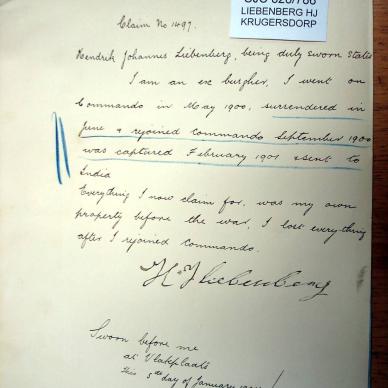 CJC 820/786
LIEBENBERG HJ
KRUGERSDORP
Claim No 1497.
Hendrik Johannes Liebenberg, being duly sworn States
I am an ex burgher, I went on
Commando in May 1900, surrendered in
June & rejoined Commando September 1900
was captured February 1901 & sent to
India
Everything I now claim for, was my own
property before the war, I lost everything
after I rejoined Commando.
H J Liebenberg
Sworn before me
at Vlakplaats
this 5th day of January